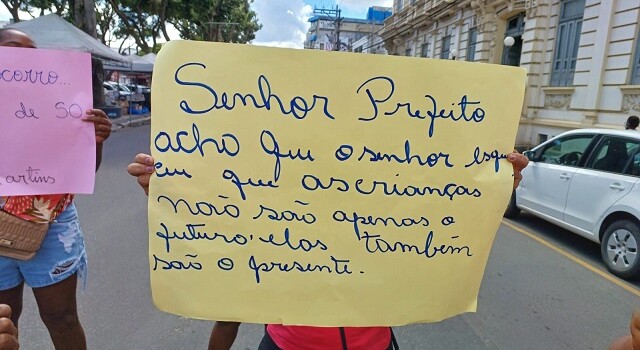 ocorro...
de SO
artins
Senhor Prefeito
acho que o senhor esqu
eu que as crianças
não são apenas o
futuro, elas também
são o presente.